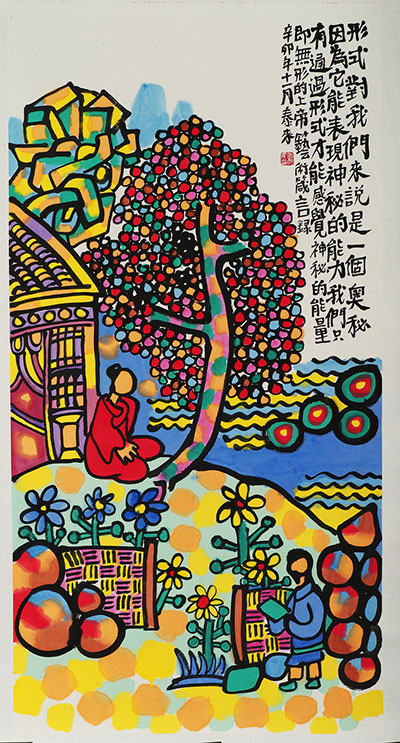 形式對我們來説是一個奧秘
因為它能表現神秘的能力我們只
有通過形式才能感覺神秘的能量
即無形的上帝藝術箴言錄
辛卯年十月泰來